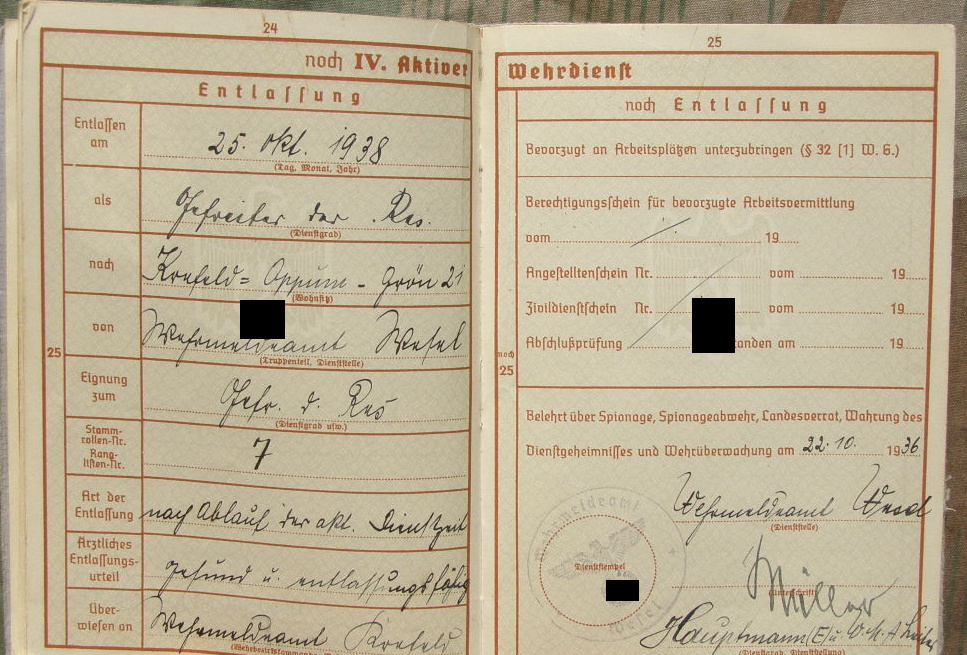 24
noch IV. Aktiver
Entlassung
Entlassen am
25. Okt. 1938
(Tag, Monat, Jahr)
als
Gefreiter der Res.
(Dienstgrad)
nach
Krefeld= Oppum - Grön 21
(Wohnsitz)
von
Wehrmeldeamt Wesel
(Truppenteil, Dienststelle)
25
Eignung zum
Gefr. d. Res
(Dienstgrad usw.)
Stamm-
rollen-Nr.
Rang-
listen-Nr.
7
Art der
Entlassung
nach Ablauf der akt. Dienstzeit
Ärztliches
Entlassungs-
urteil
Gesund u. entlassungsfähig
Über-
wiesen an
Wehrmeldeamt Krefeld
25
Wehrdienst
noch Entlassung
Bevorzugt an Arbeitsplätzen unterzubringen (§ 32 [1] W. G.)
Berechtigungsschein für bevorzugte Arbeitsvermittlung
vom 19
Angestelltenschein Nr. vom 19
Zivildienstschein Nr. vom 19
Abschlußprüfung anden am 19
noch
25
Belehrt über Spionage, Spionageabwehr, Landesverrat, Wahrung des
Dienstgeheimnisses und Wehrüberwachung am 22.10. 1936
Wehrmeldeamt Wesel
(Dienststelle)
Wehrmeldeamt
Dienststempel
Wesel
Müller
(Unterschrift)
Hauptmann (E) u. W.M.A Leiter
(Dienstgrad, Dienststellung)